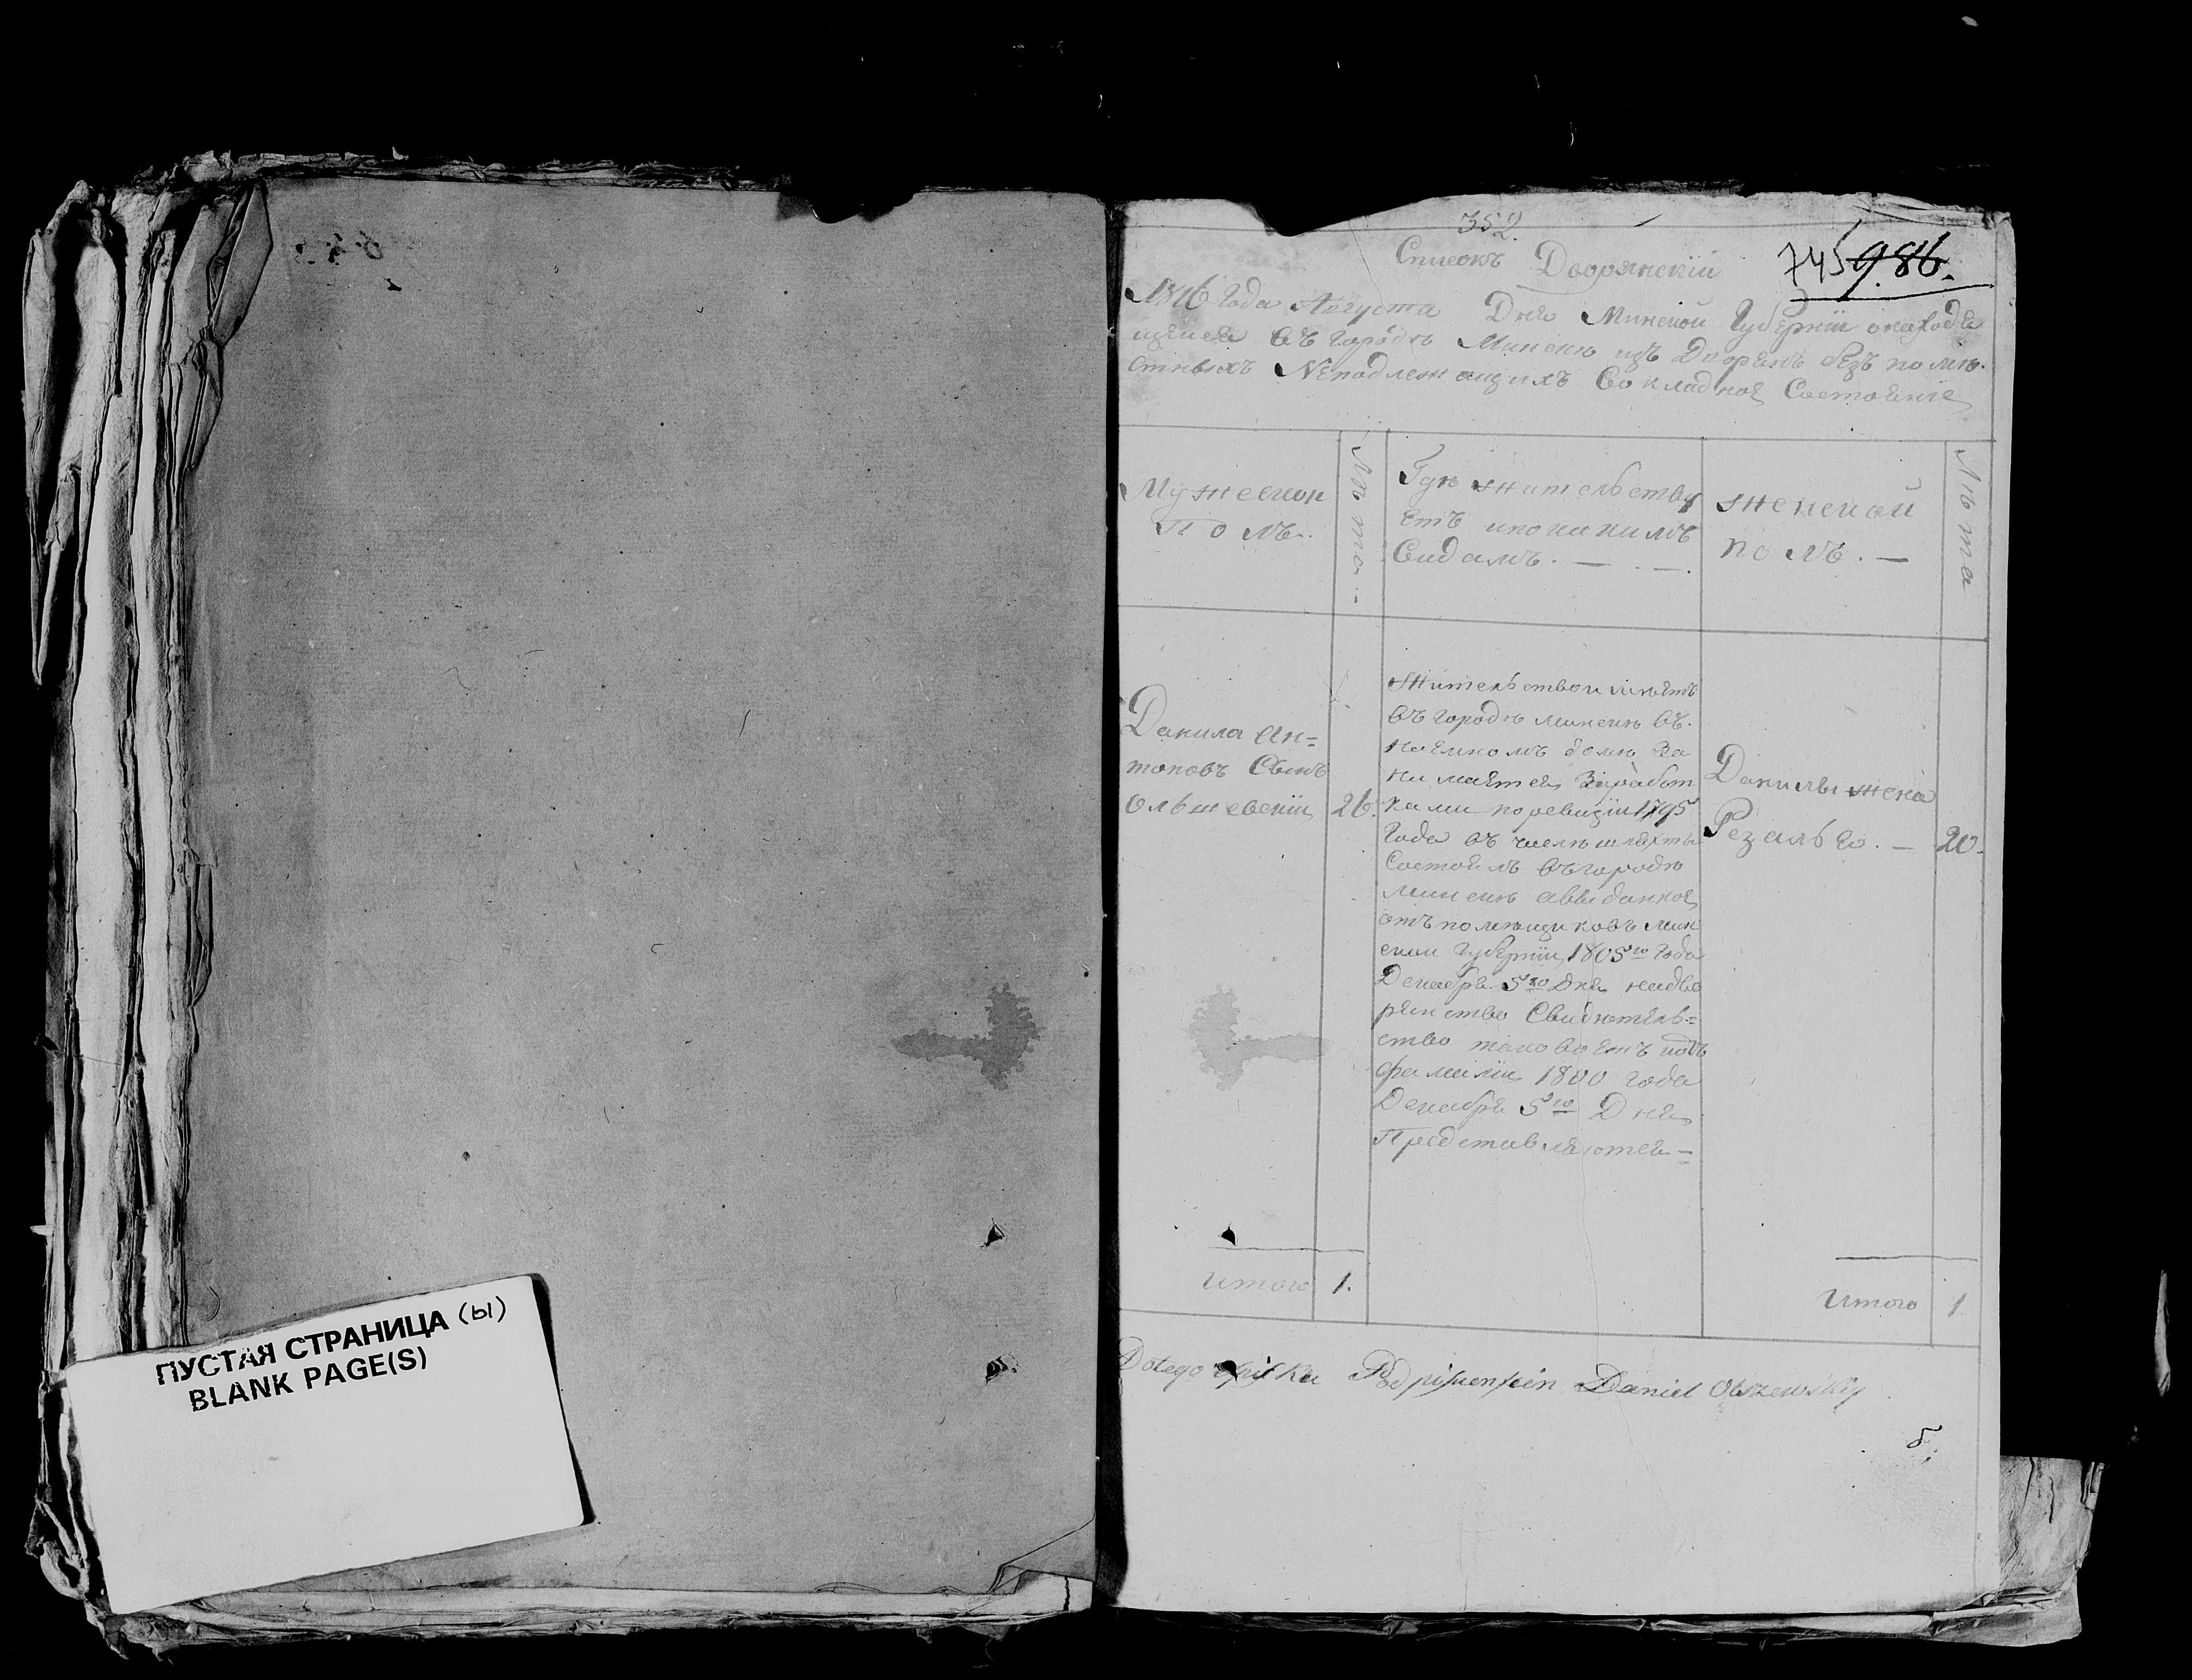 352.
745 986.
Списокъ Дворянскій
1816 года Августа Дня Минской Губерніи онаходя
щемся въ городѣ Минскѣ изъ Дворянъ безъ помѣ-
стныхъ Неподлежащихъ Вокладное Состояніе
Мужескои
полъ.
Лѣта
Гдѣ жительству
етъ ипокакимъ
Видамъ. — . —.
женской
полъ. —
Лѣта
Данила Ан=
тоновъ Сынъ
Ольшевскіи
26.
Жительствоимѣетъ
въ городѣ минскѣ въ
наемномъ домѣ За
нимается Заработ
ками поревизіи 1795
года въ числѣ шляхты
Состоялъ въ городѣ
минскѣ авыданное
отъ помѣщиковъ мин
скои губерніи 1805го года
Декабря 5го Дня надво
рянство Свидѣтель=
ство
фамиліи 1800 года
Декабря 5го Дня
Представляются =
Данилы жена
Резалья. —
20.
Итого 1.
Итого 1
Dotego spisku Podpisuensein Daniel Olszewskiy
б.
ПУСТАЯ СТРАНИЦА (Ы)
BLANK PAGE(S)